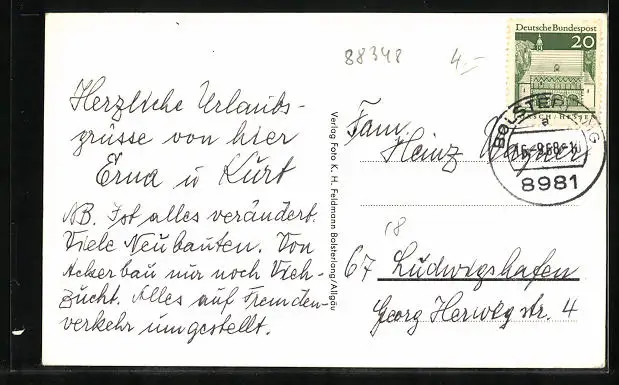 88348
4,-
Deutsche Bundespost
20
8981
Herzliche Urlaubs-
grüsse von hier
Erna u Kurt
NB. Ist alles verändert.
Viele Neubauten. Von
Ackerbau nur noch Vieh-
zucht. Alles auf Fremden-
verkehr umgestellt.
Verlag Foto K. H. Feldmann Bolsterlang/Allgäu
Fam.
Heinz Wagner
18
67 Ludwigshafen
Georg Herwegstr. 4